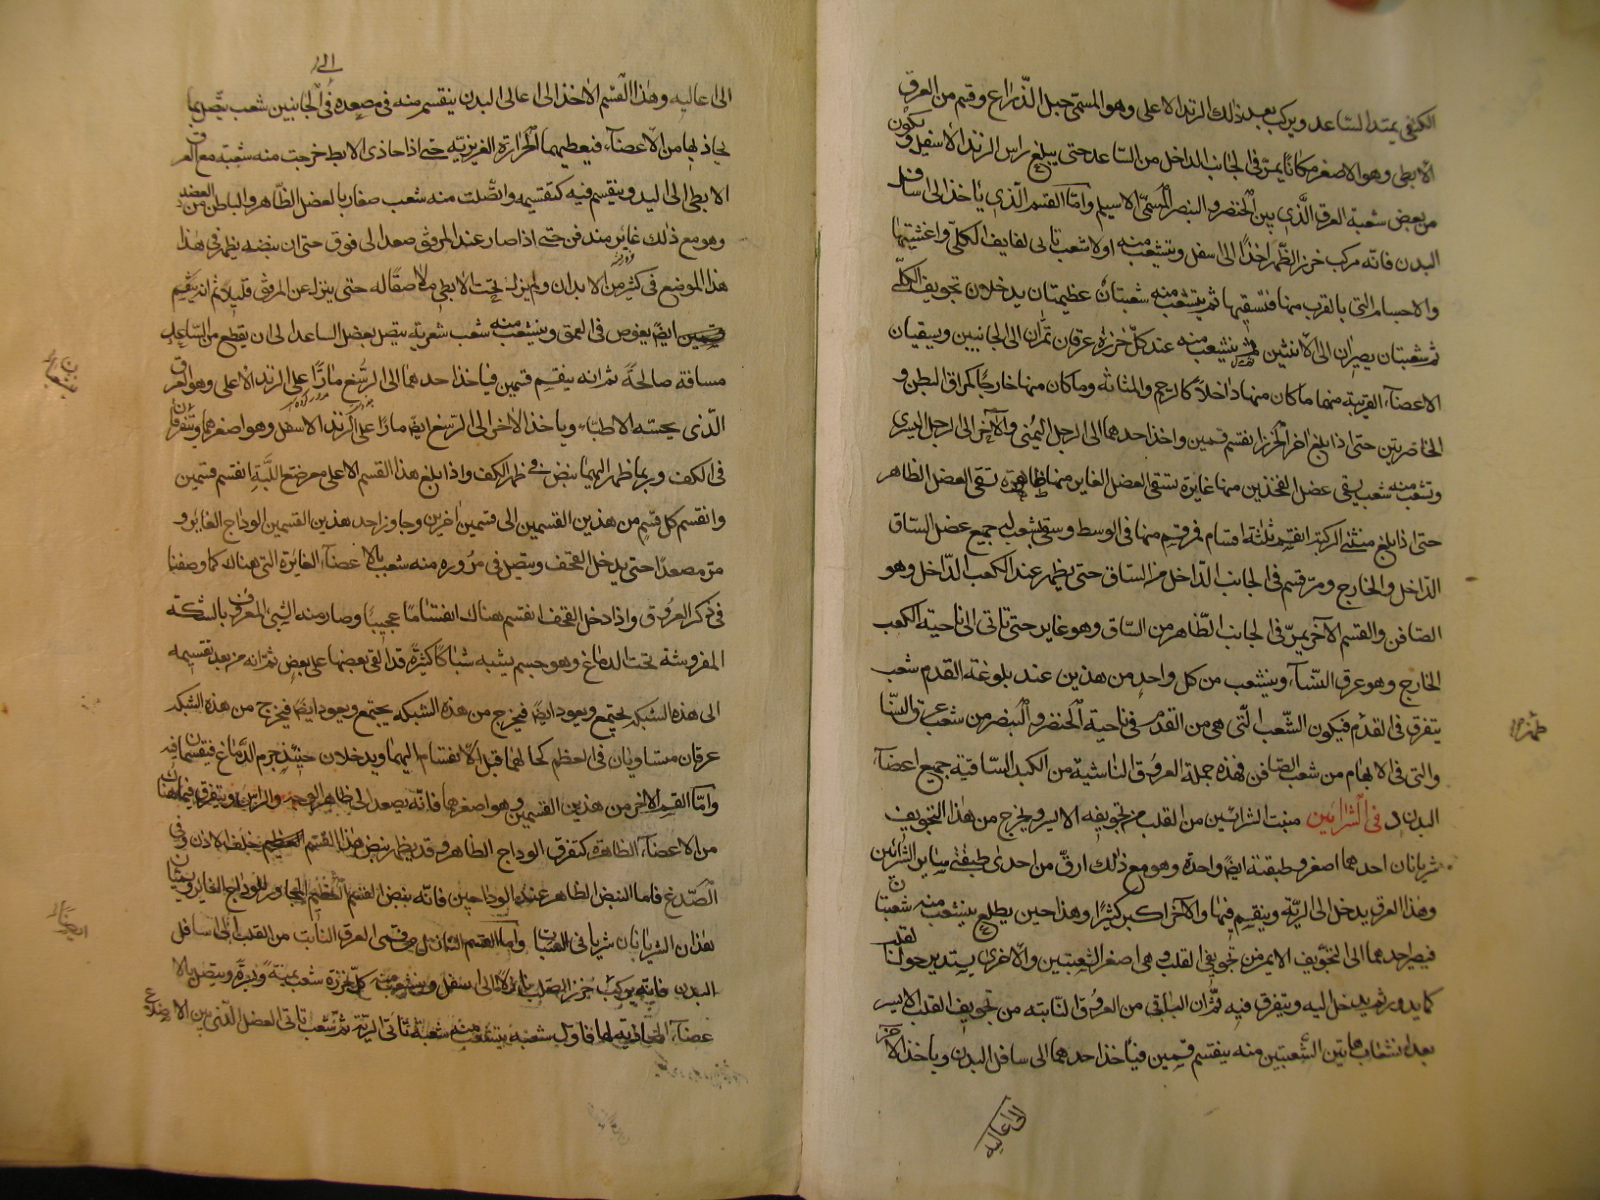 الكتفي يمتد الساعد ويركب بعد ذلك الزند الاعلى وهو المسمى حبل الذراع وقسم من العرق
الابطي وهو الاصغر مكانا يمر في الجانب الداخل من الساعد حتى يبلغ راس الزند الاسفل ويكون
من بعض شعبة العرق الذي بين الخنصر والبنصر المسمى الاسيلم واما القسم الذي ياخذ الى اسافل
البدن فانه مركب خرز الظهر اخذا الى اسفل وتتشعب منه اولا شعب تاتى لفايف الكلى واغشيتها
والاجسام التي بالقرب منها فتسقيها ثم يتشعب منه شعبتان عظيمتان يدخلان تجويف الكلى
ثم شعبتان يصيران الى الانثيين ثم يتشعب منه عند كل خرزة عرقان يمران الى الجانبين ويسقيان
الاعضاء القريبة منها ما كان منها داخلا كالرحم والمثانة وما كان منها خارجا كمراق البطن و
الخاصرتين حتى اذا بلغ اخر الخرز انقسم قسمين واخذ احدهما الى الرجل اليمنى والاخر الى الرجل اليسرى
وتشعب منه شعب يسقى عضل الفخذين منها غايرة تسقى العضل الغاير منها ظاهرة تسقى العضل الظاهر
حتى اذا بلغ مثنى الركبة انقسم ثلثة اقسام فمر قسم منها في الوسط وسقى بشعب له جميع عضل الساق
الداخل والخارج ومر قسم في الجانب الداخل من الساق حتى يظهر عند الكعب الداخل وهو
الصافن والقسم الآخر يمر في الجانب الظاهر من الساق وهو غاير حتى تاتى الى ناحية الكعب
الخارج وهو عرق النسآ وينشعب من كل واحد من هذين عند بلوغه القدم شعب
يتفرق في القدم فيكون الشعب التي هي من القدم في ناحية الخنصر والبنصر من شعب عرق النسا
والتي في الابهام من شعب الصافن فهذه جملة العروق الناشية من الكبد الساقية جميع اعضآء
البدن و في الشرائين منبت الشرائين من القلب من تجويفه الايسر ويخرج من هذا التجويف
شريانان احدهما اصغر وطبقته ايضا واحدة وهو مع ذلك ارق من احدى طبقتى ساير الشرائين
وهذا العرق يدخل الى الرية وينقسم فيها والآخر اكبر كثيرا وهذا حين يطلع يتشعب منه شعبتان
فيصير احدهما الى التجويف الايمن من تجويفى القلب وهي اصغر الشعبتين والاخرى يستدير حول القلب
كما يدور ثم يدخل اليه ويتفرق فيه ثم ان الباقي من العرق النابته من تجويف القلب الايسر
بعد انشعاب هاتين الشعبتين منه ينقسم قسمين فياخذ احدهما الى سافل البدن وياخذ الاخر
الى اعاليه
الى اعاليه وهذا القسم الاخذ الى اعالى البدن ينقسم منه في مصعده في الجانبين شعب يتصل بما
يحاذيها من الاعضآء فيعطيهما الحرارة الغريزية حتى اذا حاذى الابط خرجت منه شعبة مع العرق
الابطى الى اليد وينقسم فيه كتقسيمه واتصلت منه شعب صغار بالعضل الظاهر والباطن من العضد
وهو مع ذلك غاير مندفن حتى اذا صار عند المرفق صعد الى فوق حتى ان نبضه يظهر في هذا
هذا الموضع في كثير من الابدان ولم يزل تحت الابطى ملاصقا له حتى ينزل عن المرفق قليلا ثم انه ينقسم
ايضا يغوص في العمق ويتشعب منه شعب شعرية يتصل بعضل الساعد الى ان يقطع من الساعد
مسافة صالحة ثم انه ينقسم قسمين فياخذ احدهما الى الرسغ مارا على الزند الاعلى وهو العرق
الذى يجسه الاطباء وياخذ الاخر الى الرسغ ايضا مارا على الزند الاسفل وهو اصغرهما ويتفرقان
في الكف وربما ظهر لهما نبض في ظهر الكف واذا بلغ هذا القسم الاعلى موضع اللبة انقسم قسمين
وانقسم كل قسم من هذين القسمين الى قسمين اخرين وجاوز احد هذين القسمين الوداج الغائر و
مر مصعدا حتى يدخل القحف ويتصل في مروره منه شعب بالاعضآء الغايرة التى هناك كما وصفنا
في ذكر العروق واذا دخل القحف انقسم هناك انقساما عجيبا وصار منه الشئ المعروف بالشبكة
المفروشة تحت الدماغ وهو جسم يشبه شباكا كثيرة قد القى بعضها على بعض ثم انه من بعد تقسيمه
الى هذه الشبكة يجتمع ويعود ايضا فيخرج من هذه الشبكة يجتمع ويعود ايضا فيخرج من هذه الشبكة
عرقان متساويان في العظم كحالهما قبل الانقسام اليهما ويدخلان حينئذ جرم الدماغ فينقسمان فيه
واما القسم الاخر من هذين القسمين وهو اصغرهما فانه يصعد الى ظاهر الوجه والراس ويتفرق فيما هناك
من الاعضآء الظاهرة كتفرق الوداج الظاهر وقد يظهر نبض هذا القسم خلف الاذن وفي
الصدغ فاما النبض الظاهر عند الوداجين فانه نبض القسم العظيم المجاور للوداج الغاير ويسميان
هذان الشريانان شرياني السبات واما القسم النازل من قسمى العرق النابت من القلب الى اسافل
البدن فانه يركب خرز الصلب نازلا الى اسفل ويتشعب منه عند كل خرزة شعب يمنة ويسرة ويتصل بالا
عضآء المحاذية لها فاول شعبه يتشعب منه شعبة تاتى الرية ثم شعب تاتى العضل الذى بين الاضلاع